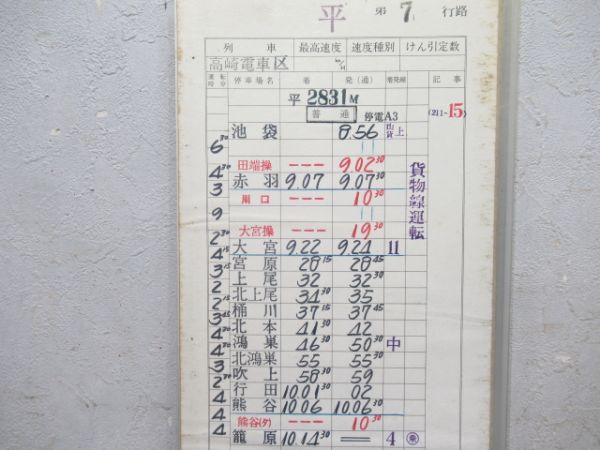 平 第 7 行路
列車 最高速度 速度種別 けん引定数
高崎電車区 km/H
運転時分 停車場名 着 発(通) 着発線 記事
平 2831M
普通 停電A3 (2)1~15
池袋 8.56 上
6 30
田端操 --- 9.02 30
4 30
赤羽 9.07 9.07 30
3
川口 --- 10 30
9
大宮操 --- 19 30
2 30
大宮 9.22 9.24 11
4 15
宮原 28 15 28 45
3 15
上尾 32 32 30
2
北上尾 34 30 35
2 15
桶川 37 15 37 45
3 45
北本 41 30 42
4 30
鴻巣 46 30 50 30 中
4 30
北鴻巣 55 55 30
3
吹上 58 30 59
2 30
行田 10.01 30 02
4
熊谷 10.06 10.06 30
4
熊谷(タ) --- 10 30
4
籠原 10.14 30 4
貨物線運転